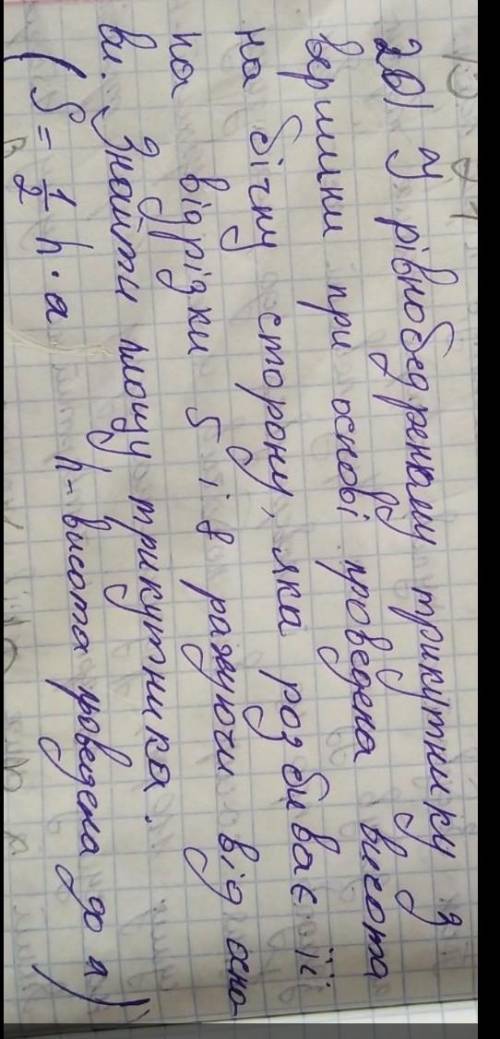 20) У рівнобедреному трикутнику з
вершини при основі проведена висота
на бічну сторону, яка розбиває її
на відрізки 5 і 8 рахуючи від осно-
ви. Знайти площу трикутника.
( S = 1/2 h · a h - висота проведена до a )